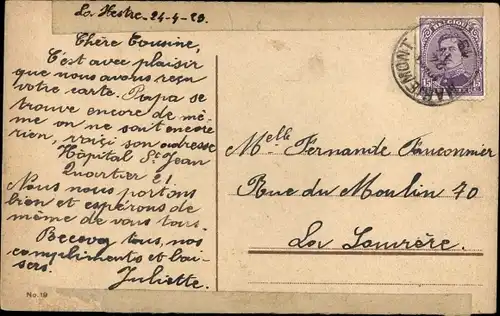 La Hestre 24-4-20.
Chère Cousine,
C'est avec plaisir
que nous avons reçu
votre carte. Papa se
trouve encore de mê-
me on ne sait encore
rien, voici son adresse
Hôpital St Jean
Quartier 2!
Nous nous portons
bien et espérons de
même de vous tous.
Recevez tous, nos
compliments et bai-
sers.
Juliette.
No. 19
MARIEMONT
BELGIQUE
15
Melle Fernande Fauconnier
Rue du Moulin 70
La Louvière.